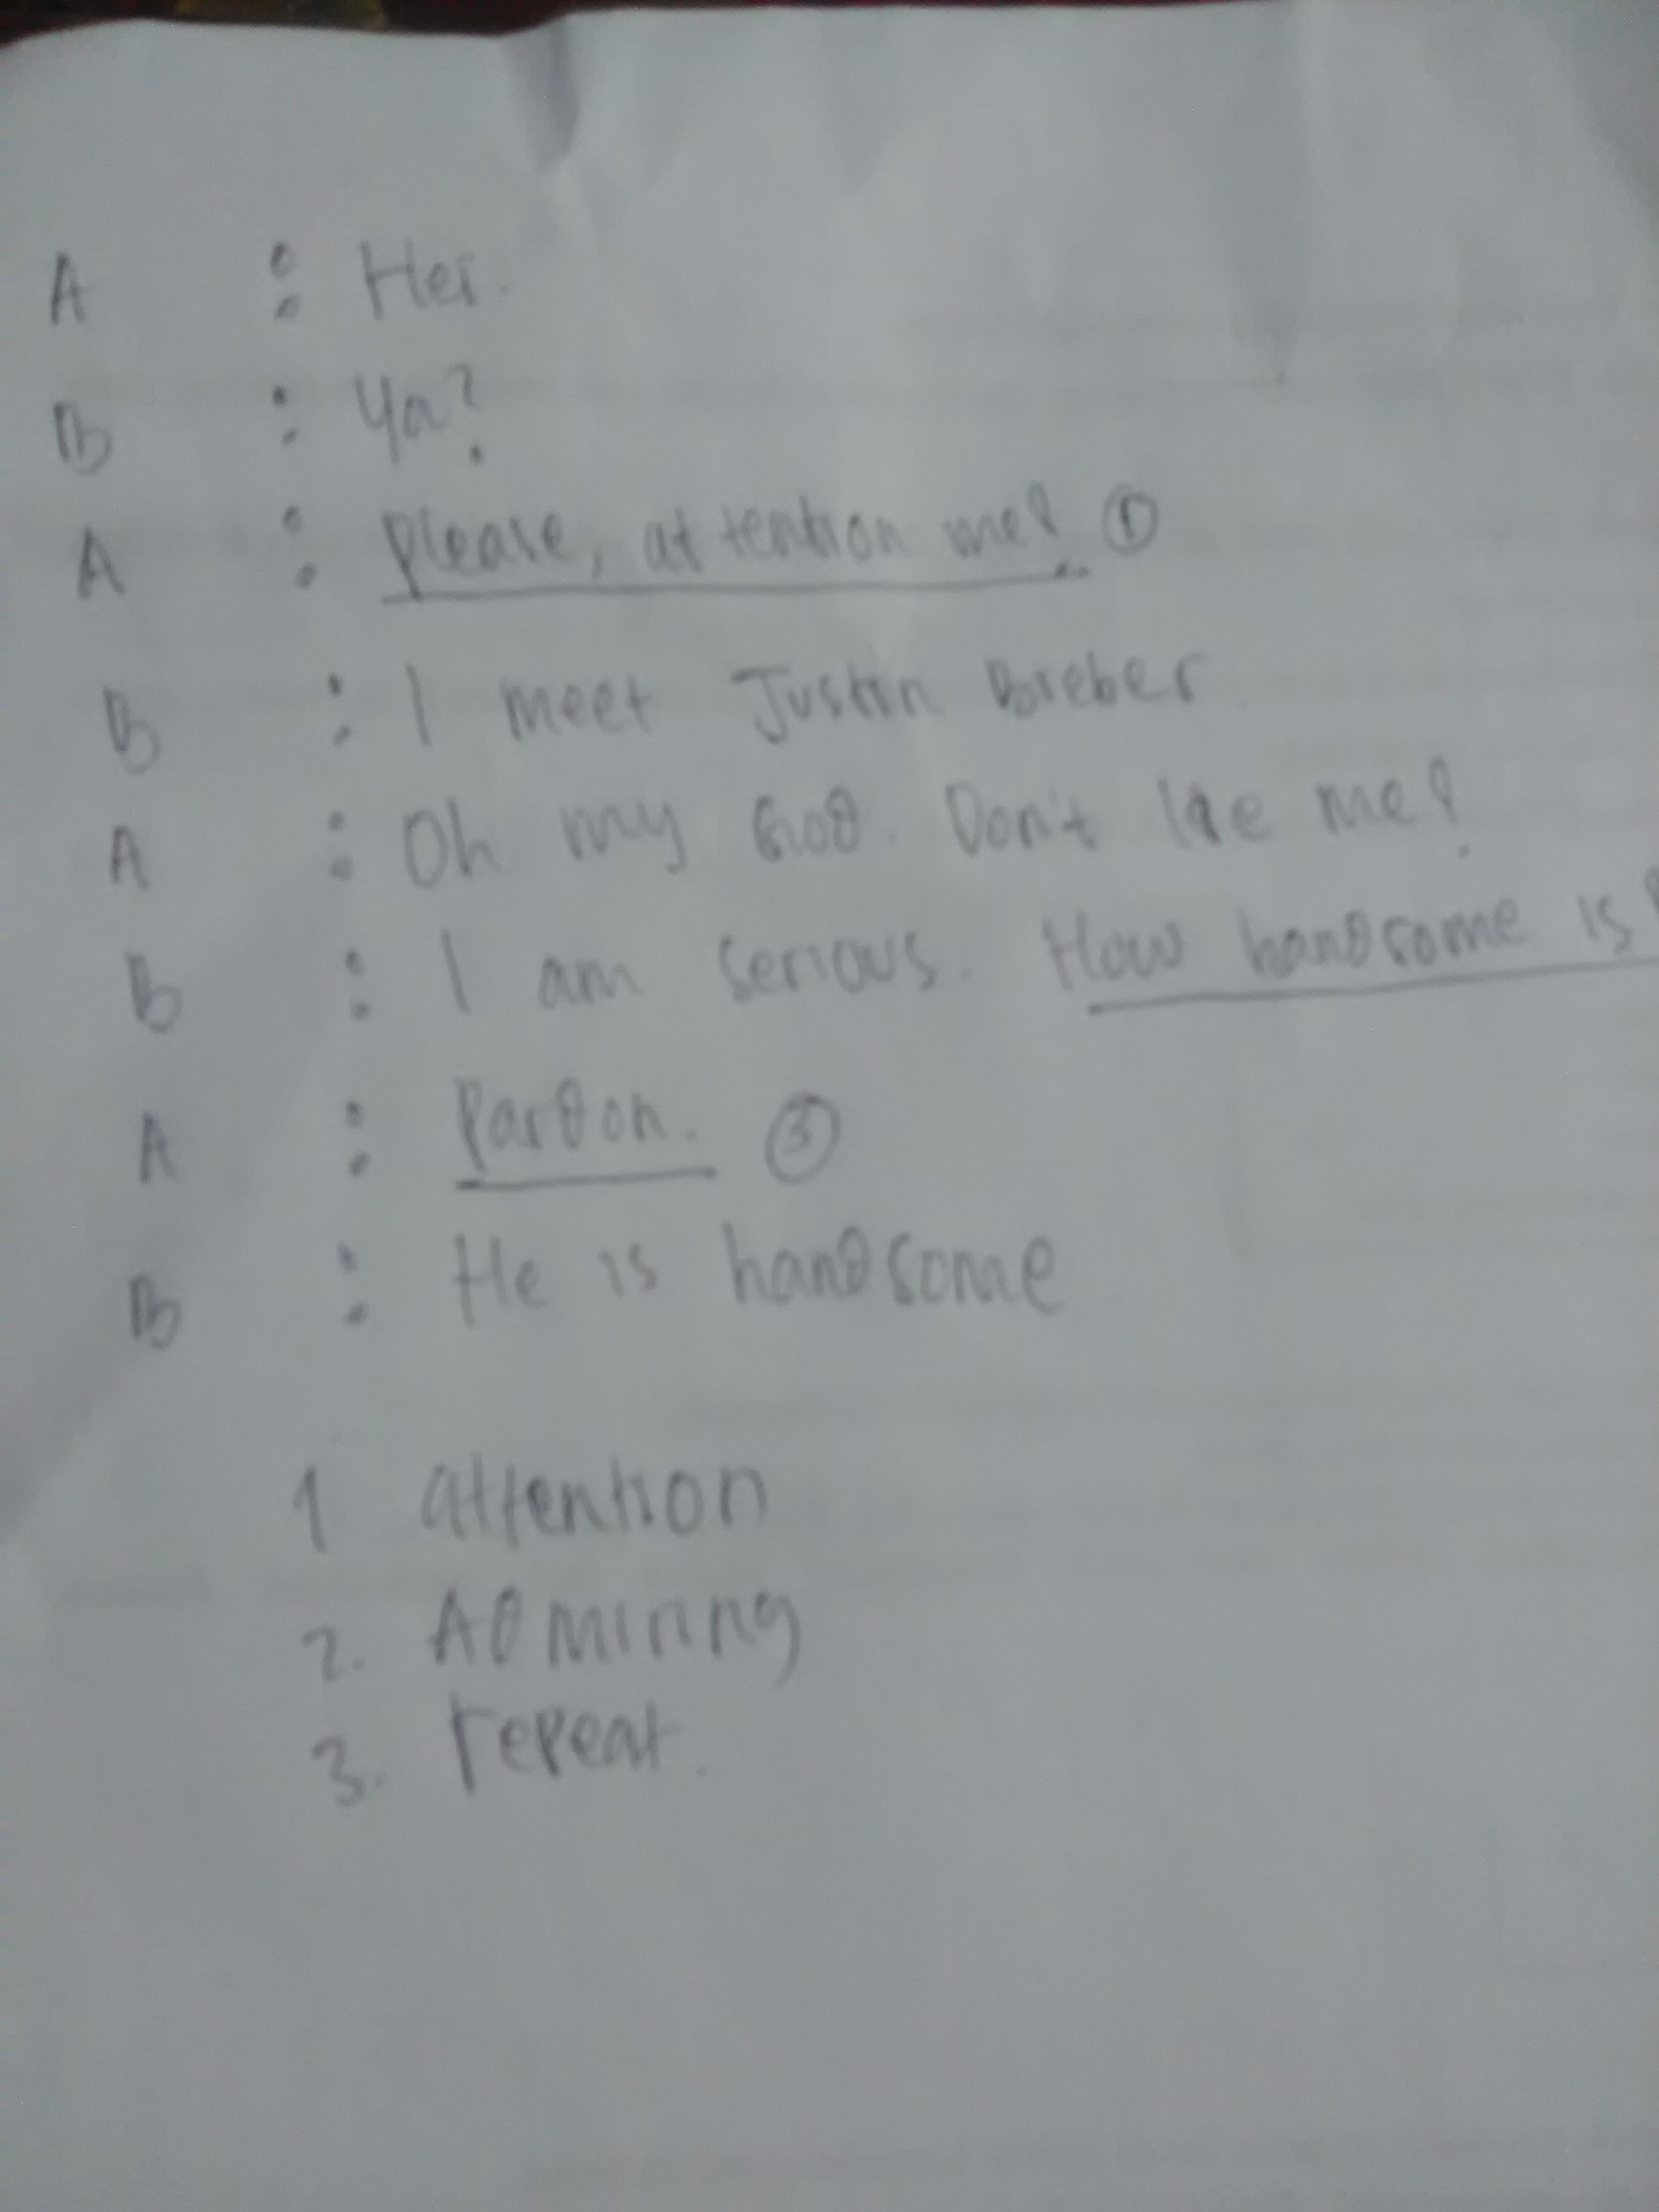 A : Hei.
B : Ya?
A : Please, attention me! ①
B : I meet Justin Bieber
A : Oh my God. Don't lie me!
B : I am serious. How handsome is
A : Pardon. ③
B : He is handsome
1 attention
2. Admiring
3. repeat.